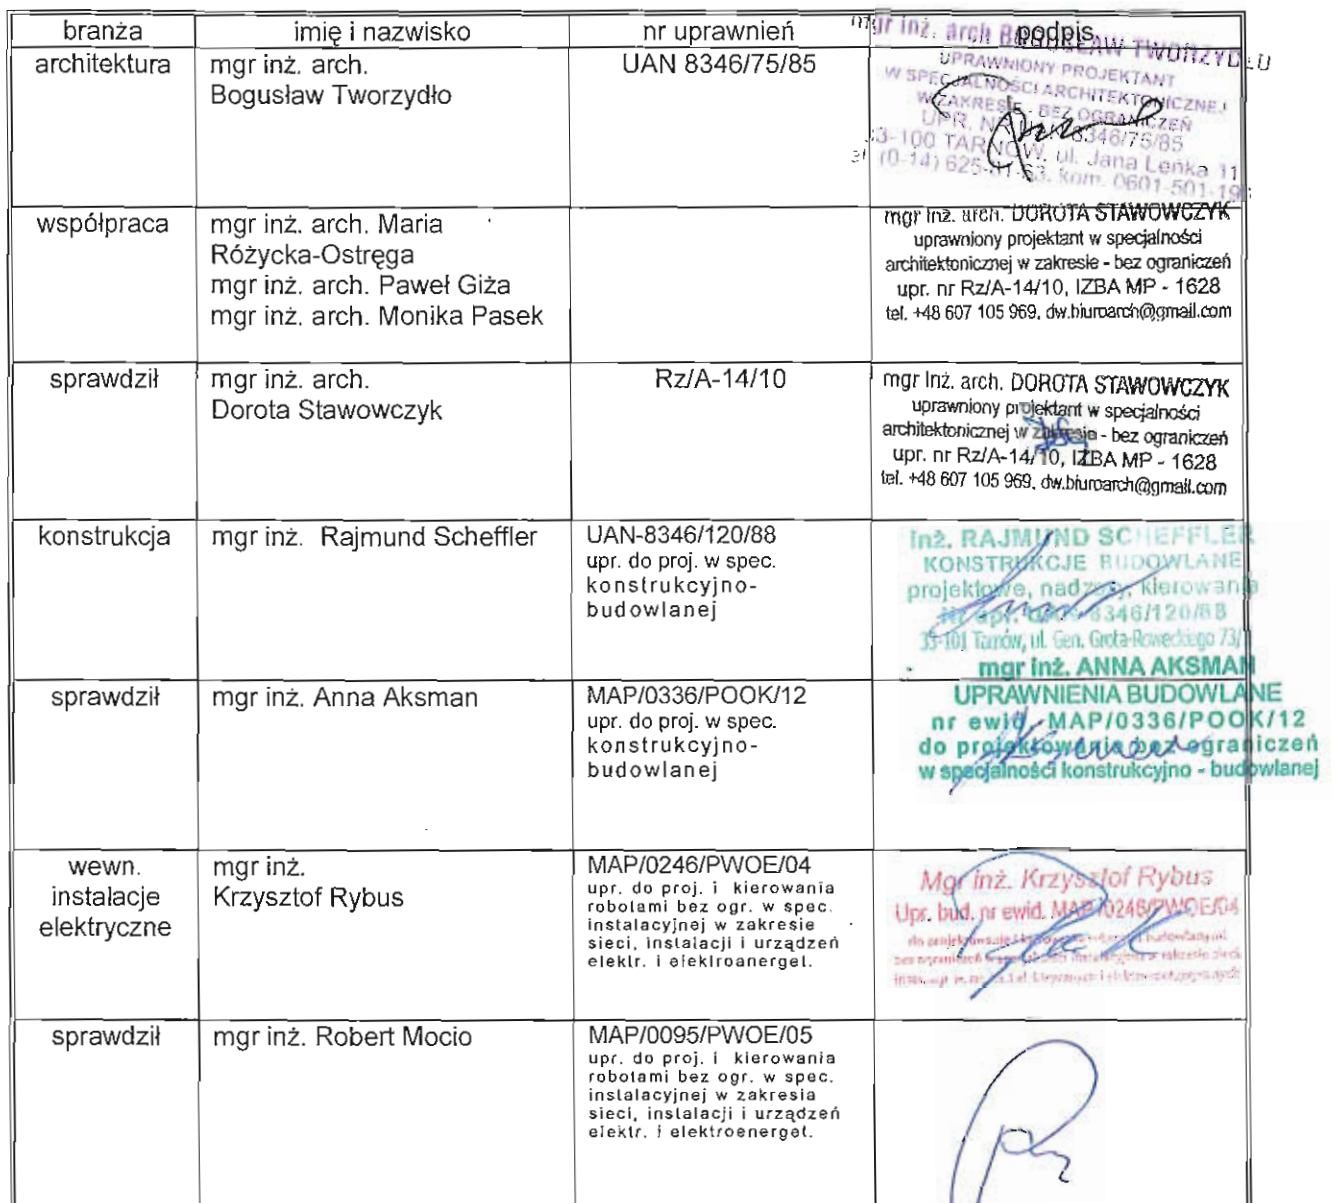 branża imię i nazwisko nr uprawnień podpis
architektura mgr inż. arch. UAN 8346/75/85
Bogusław Tworzydło
mgr inż. arch BOGUSŁAW TWORZYDŁO
UPRAWNIONY PROJEKTANT
W SPECJALNOŚCI ARCHITEKTONICZNEJ
W ZAKRESIE - BEZ OGRANICZEŃ
UPR. NR 8346/75/85
33-100 TARNÓW, ul. Jana Leńka 11
(0-14) kom. 0601-501-19
współpraca mgr inż. arch. Maria
Różycka-Ostręga
mgr inż. arch. Paweł Giża
mgr inż. arch. Monika Pasek
mgr inż. arch. DOROTA STAWOWCZYK
uprawniony projektant w specjalności
architektonicznej w zakresie - bez ograniczeń
upr. nr Rz/A-14/10, IZBA MP - 1628
tel. +48 607 105 969, dw.biuroarch@gmail.com
sprawdził mgr inż. arch. Rz/A-14/10
Dorota Stawowczyk
mgr inż. arch. DOROTA STAWOWCZYK
uprawniony projektant w specjalności
architektonicznej w zakresie - bez ograniczeń
upr. nr Rz/A-14/10, IZBA MP - 1628
tel. +48 607 105 969, dw.biuroarch@gmail.com
konstrukcja mgr inż. Rajmund Scheffler UAN-8346/120/88
upr. do proj. w spec.
konstrukcyjno-
budowlanej
inż. RAJMUND SCHEFFLER
KONSTRUKCJE BUDOWLANE
projektowe, nadzory, kierowanie
Nr upr. UAN-8346/120/88
33-101 Tarnów, ul. Gen. Grota-Roweckiego 73/
sprawdził mgr inż. Anna Aksman MAP/0336/POOK/12
upr. do proj. w spec.
konstrukcyjno-
budowlanej
mgr inż. ANNA AKSMAN
UPRAWNIENIA BUDOWLANE
nr ewid. MAP/0336/POOK/12
do projektowania bez ograniczeń
w specjalności konstrukcyjno - budowlanej
wewn. mgr inż. MAP/0246/PWOE/04
instalacje Krzysztof Rybus
elektryczne
upr. do proj. i kierowania
robotami bez ogr. w spec.
instalacyjnej w zakresie
sieci, instalacji i urządzeń
elektr. i elektroanerget.
Mgr inż. Krzysztof Rybus
Upr. bud. nr ewid. MAP/0246/PWOE/04
sprawdził mgr inż. Robert Mocio MAP/0095/PWOE/05
upr. do proj. i kierowania
robotami bez ogr. w spec.
instalacyjnej w zakresia
sieci, instalacji i urządzeń
elektr. i elektroenerget.